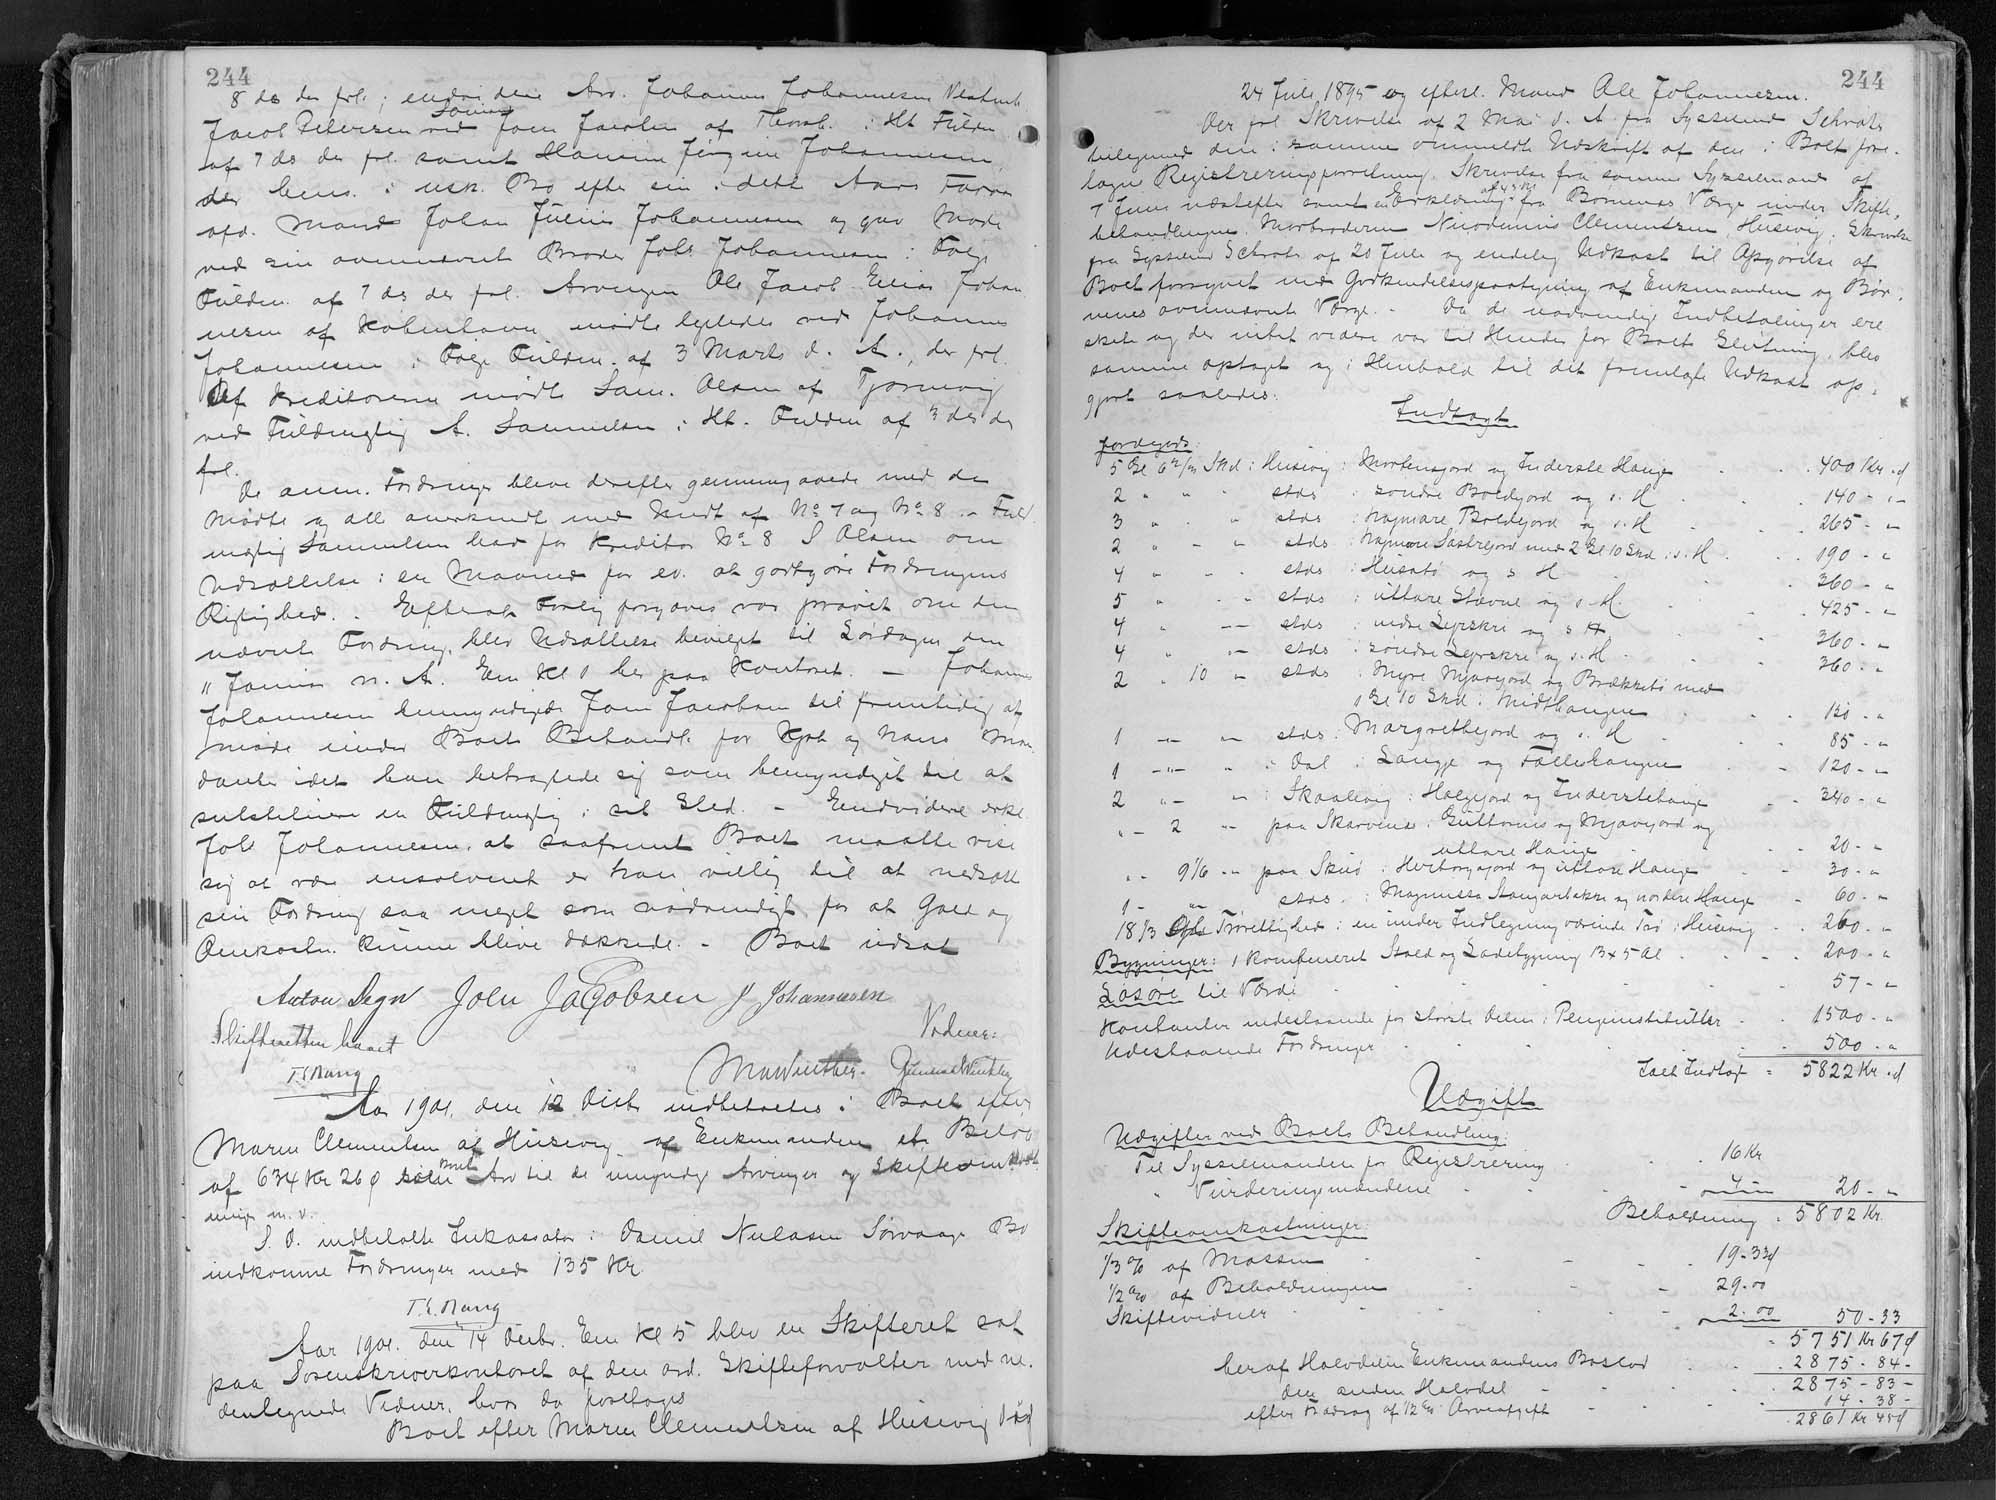 244
8 ds der frl.; endvidere Arv. Johannes Johannesen Vestmh.
Jacob Petersen Sønner ved Joen Jacobsen af Thorsh. i Ht Fuldm
af 7 ds der frl. samt Hanine Jørgine Johannesen,
der hens. i usk. Bo efter sin i dette Aars Foraar
afd. Mand Johan Julius Johannesen og gav Møde
ved sin ovennævnte Broder Johs Johannesen i Følge
Fuldm. af 7 ds der frl. Arvingen Ole Jacob Elias Johan
nesen af København mødte ligeledes ved Johannes
Johannesen i Følge Fuldm. af 3 Marts d. A., der frl.
Af Kreditorerne mødte Sam. Olsen af Tjørnevig
ved Fuldmægtig A. Samuelsen i Ht. Fuldm af 3 ds der
frl.
De anm. Fordringer bleve derefter gennemgaaede med de
mødte og all anerkendt med Undt af No 7 og No 8. - Fuld
mægtig Samuelsen bad for Kreditor No 8 S Olsen om
Udsættelse i en Maaned for ev. at godtgøre Fordringens
Rigtighed. - Efterat Forlig forgæves var prøvet om den
nævnte Fordring, blev Udsættelse bevilget til Lørdagen den
11 Januar n. A. Em. Kl 1 her paa Kontoret. - Johannes
Johannesen bemyndigede Joen Jacobsen til fremtidig at
møde under Boets Behandl. for Kjøb og hans Man
danter idet han betragtede sig som bemyndiget til at
substituere en Fuldmægtig i sit Sted. - Endvidere erkl.
Johs Johannesen, at saafremt Boet maatte vise
sig at være insolvent er han villig til at nedsætte
sin Fordring saa meget som nødvendigt for at Gæld og
Omkostn. kunne blive dækkede. - Boet udsat
Anton Degn Joen Jacobsen J Johannesen
Skifteretten hævet
Vidner:
T. S. Bang
M Winther. Gunnar Winther
Aar 1901. den 12 Decbr indbetaltes i Boet efter
Maren Clementsen af Husevig af Enkemanden et Beløb
af 634 Kr 26 ø som Boets Arv til de umyndige Arvinger og Skifteomkost
ninger m. v.
S. D. indbetalte Inkassator i Daniel Niclasen Sørvaags Bo
indkomne Fordringer med 135 Kr
T. S. Bang
Aar 1901. den 14 Decbr. Em Kl 5 blev en Skifteret sat
paa Sorenskriverkontoret af den ord. Skifteforvalter med ne-
dentegnede Vidner, hvor da foretoges
Boet efter Maren Clementsen af Husevig død
244
24 Juli 1895 og efterl. Mand Ole Johannesen.
Der frl Skrivelse af 2 Mai d. A. fra Sysselmd Schrøter
bilegned den i samme ommeldte Udskrift af den i Boet fore-
tagne Registreringsforretning. Skrivelse fra samme Sysselmand af
7 Juni næstefter samt en Erklæring af 4 s M fra Børnenes Værge under Skifte-
behandlingen. Morbroderen Nicodemus Clementsen, Husevig; Skrivelse
fra Sysselmd Schrøter af 20 Juli og endelig Udkast til Opgørelse af
Boet forsynet med Godkendelsespaategning af Enkemanden og Bør-
nenes ovennævnte Værge. - Da de nødvendige Indbetalinger ere
skete og der intet videre var til Hinder for Boets Slutning, blev
samme optaget og i Henhold til det fremlagte Udkast op-
gjort saaledes:
Indtægt
Jordgods:
5 Gl 6 2/3 Skd i Husevig: Mortensjord og Inderste Hauge . . 400 Kr . ø
2 " " " stds : søndre Boldejord og i. H . . 140 - "
3 " . " stds : Nyniare Boldejord og i. H . . 265 - "
2 " - " stds : Nyniare Sastrejord med 2 Gl 10 Skd i. H . . 190 - "
4 " - . stds : Husatø og s H . 360 - "
5 " . " stds : uttare Stavne og i H. . 425 - "
4 " -- stds : nedre Lyrskre og s H. . 360 - "
4 " " stds : søndre Lyrskre og i. H . . 360 - "
2 " 10 " stds : Myre Mjavejord og Brækketø med
1 Gl 10 Skd i Midthaugen . . 180 - "
1 -- " stds: Margrethejord og i. H . . 85 - "
1 -"- " i Dal : Langje og Fælleshaugen . - 120 - "
2 "- " i Skaalevig : Helgejord og Inderstehauge - - 340 - "
" - 2 " paa Skarvenes : Guttorms og Mjavejord og
uttare Hauge . . 20 - "
" - 9 1/6 " paa Skuø : Herborgsjord og uttare Hauge - - 30 - "
1 - " stds. : Magnusse Stangarlakkre og nordere Hauge - 60 - "
18 1/3 Trørettighed i en under Indlegning værende Trø i Husevig . . 260 - "
Bygninger: 1 kombineret Stald og Ladebygning 13 x 5 Al . . . 200 - "
Løsøre til Værdi . . . . 57 - "
Kontanter indestaaende for største Delen i Pengeinstitutter . . 1500 - "
Udestaaende Fordringer . . . 500 - "
Ialt Indtægt = 5822 Kr . ø
Udgift
Udgifter ved Boets Behandling:
Til Sysselmanden for Registrering . . 16 Kr
" Vurderingsmændene . . 4 - " 20 - "
Beholdning . 5802 Kr.
Skifteomkostninger:
1/3 % af Massen - - 19 - 33 ø
1/2 % af Beholdningen - 29 - 00
Skiftevidner . . - 2. 00 50 - 33
- 5751 Kr 67 ø
heraf Halvdelen Enkemandens Boslod . . 2875 - 84 -
den anden Halvdel - . . 2875 - 83 -
efter Fradrag af 1/2 % Arveafgift . . 14 - 38 -
. 2861 Kr 45 ø